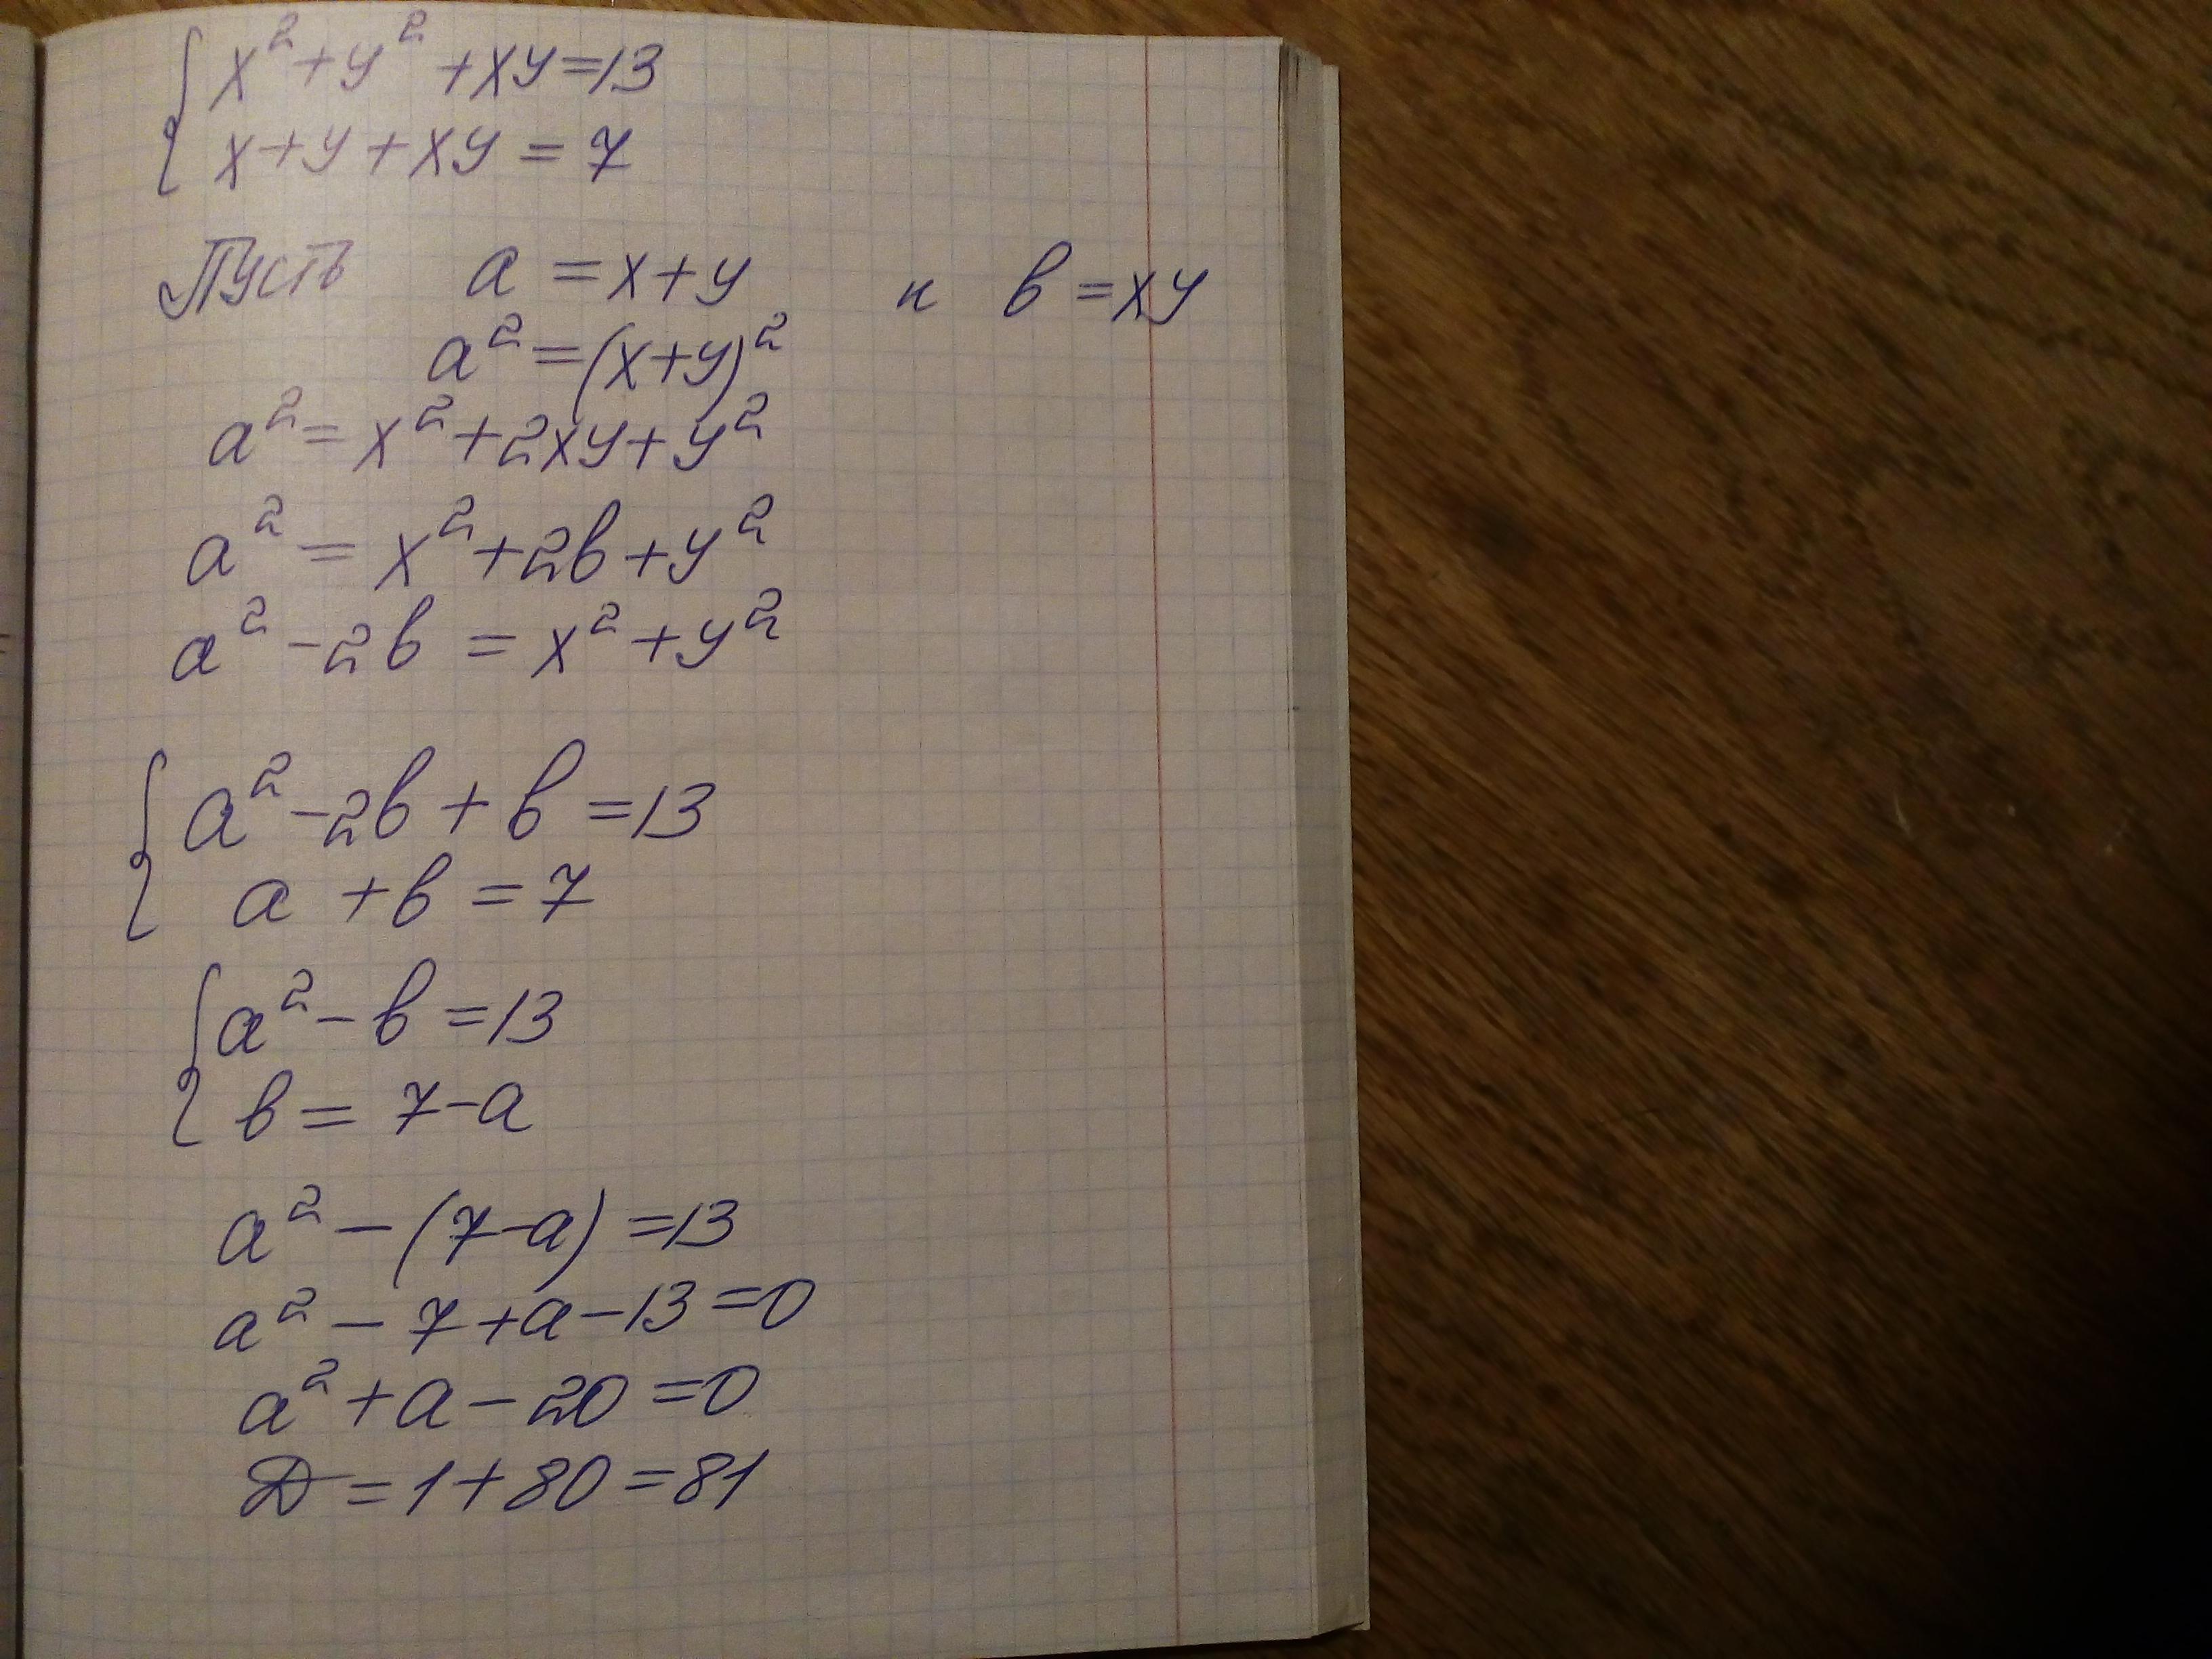 x²+y²+xy=13
x+y+xy=7
Пусть a=x+y и в=xy
a²=(x+y)²
a²=x²+2xy+y²
a²=x²+2в+y²
a²-2в=x²+y²
a²-2в+в=13
a+в=7
a²-в=13
в=7-a
a²-(7-a)=13
a²-7+a-13=0
a²+a-20=0
D=1+80=81